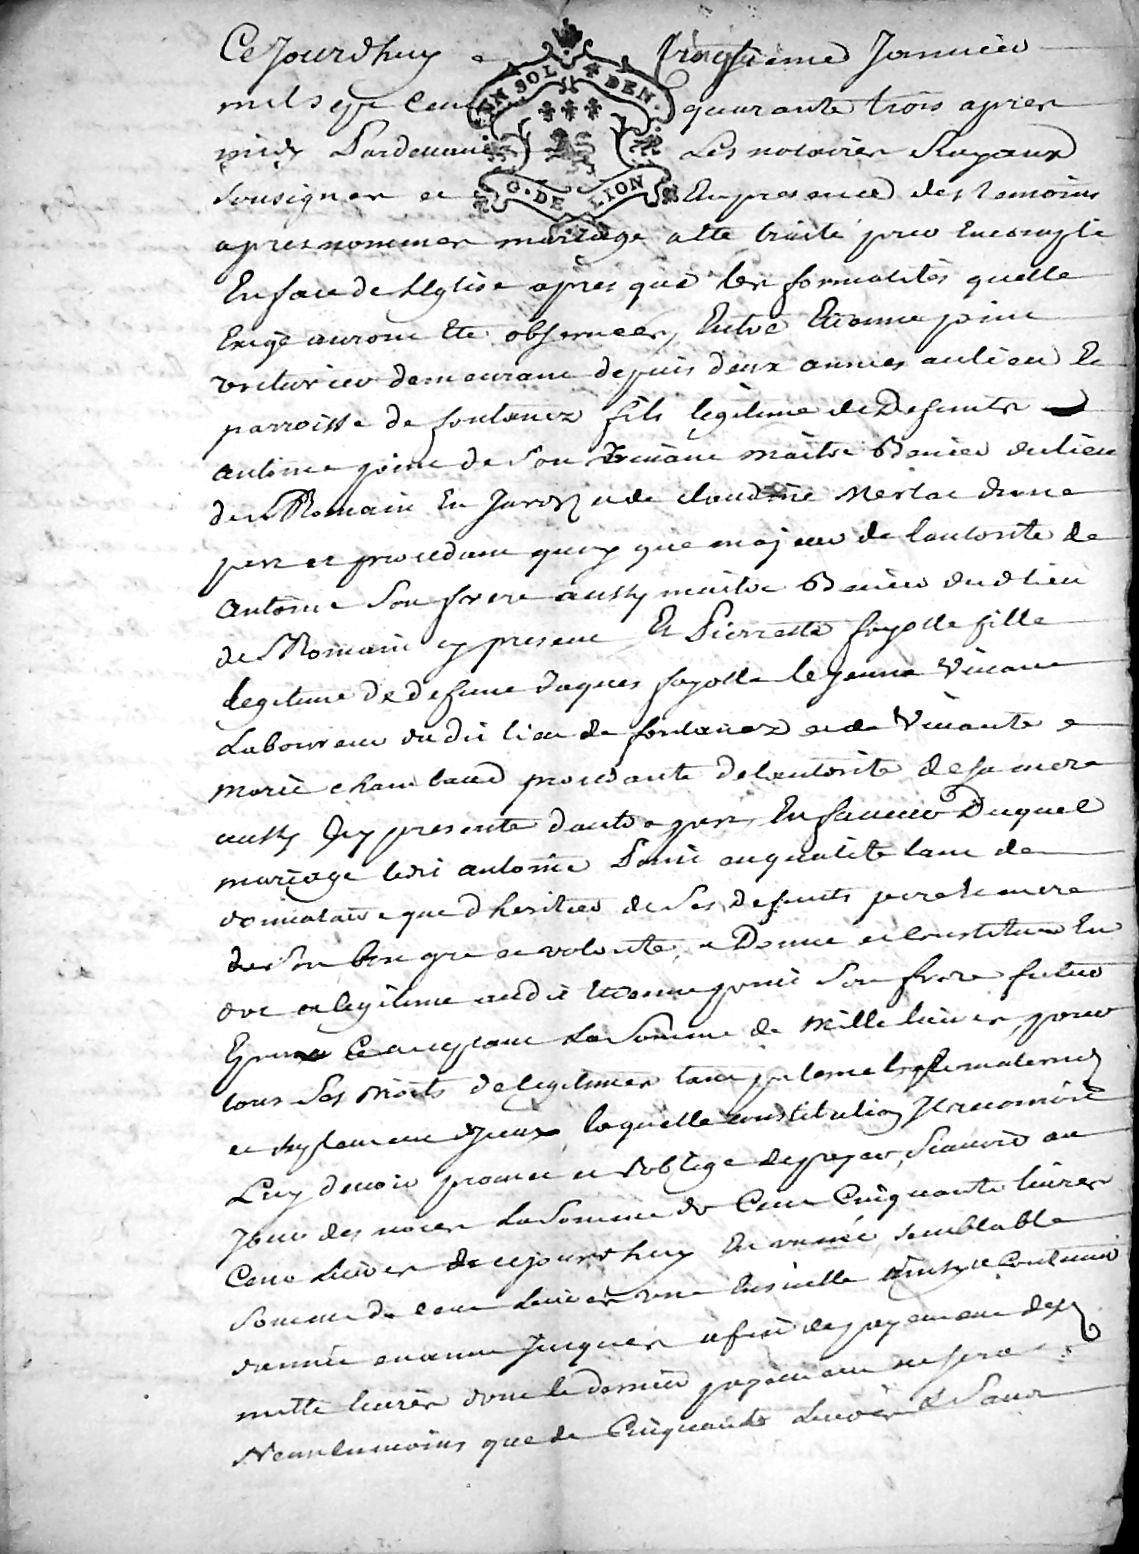 Ce Jourdhuy vingtieme Janvier
UN SOL 4 DEN.
mil sept cent quarante trois apres
midy Pardevant Les notaires Royaux
G. DE LION
Sousignes et En presence des temoins
apres nommes mariage a ete traité pour Encomplir
En face de Leglise apres que les formalités quelle
Exige auront ete observees, Entre Etienne
voiturier demeurant depuis deux annees au lieu et
parroisse de fontanez fils legitime de Defunts
antoine de son vivant maitre du lieu
de St Romain En Jarez et de claudine dune
part et procedant quoy que majeur de lautorité de
antoine Son frere aussy maitre dud lieu
de St Romain cy present Et Pierrette fayolle fille
legitime de defunt Jaques fayolle le jeune vivant
Laboureur du dit lieu de fontanez et de vivante
marie chambaud procedante de lautorité de sa mere
aussy Icy presente dautre part, En faveur Duquel
mariage ledit antoine en qualité tant de
donnataire que dheritier de Ses defunts pere et mere
de Son bon gré et volonté, a Donné et Constitué En
dot et legitime audit Etienne Son frere futur
Epoux acceptant La Somme de Mille livres, pour
tous Ses droits de legitimes tant paternels que maternels
et laquelle constitution Antoine
promet et Soblige de payer, Scavoir au
Jour des noces La Somme de Cent Cinquante livres
Cent Livres de cejourdhuy En semblable
Somme de Cent Livres une Ensuitte a Continuer
dannée en année Jusques a fin de payement desd
mille livres dont le dernier payement ne sera
Neanlmoins que de Cinquante Livres Et Sans